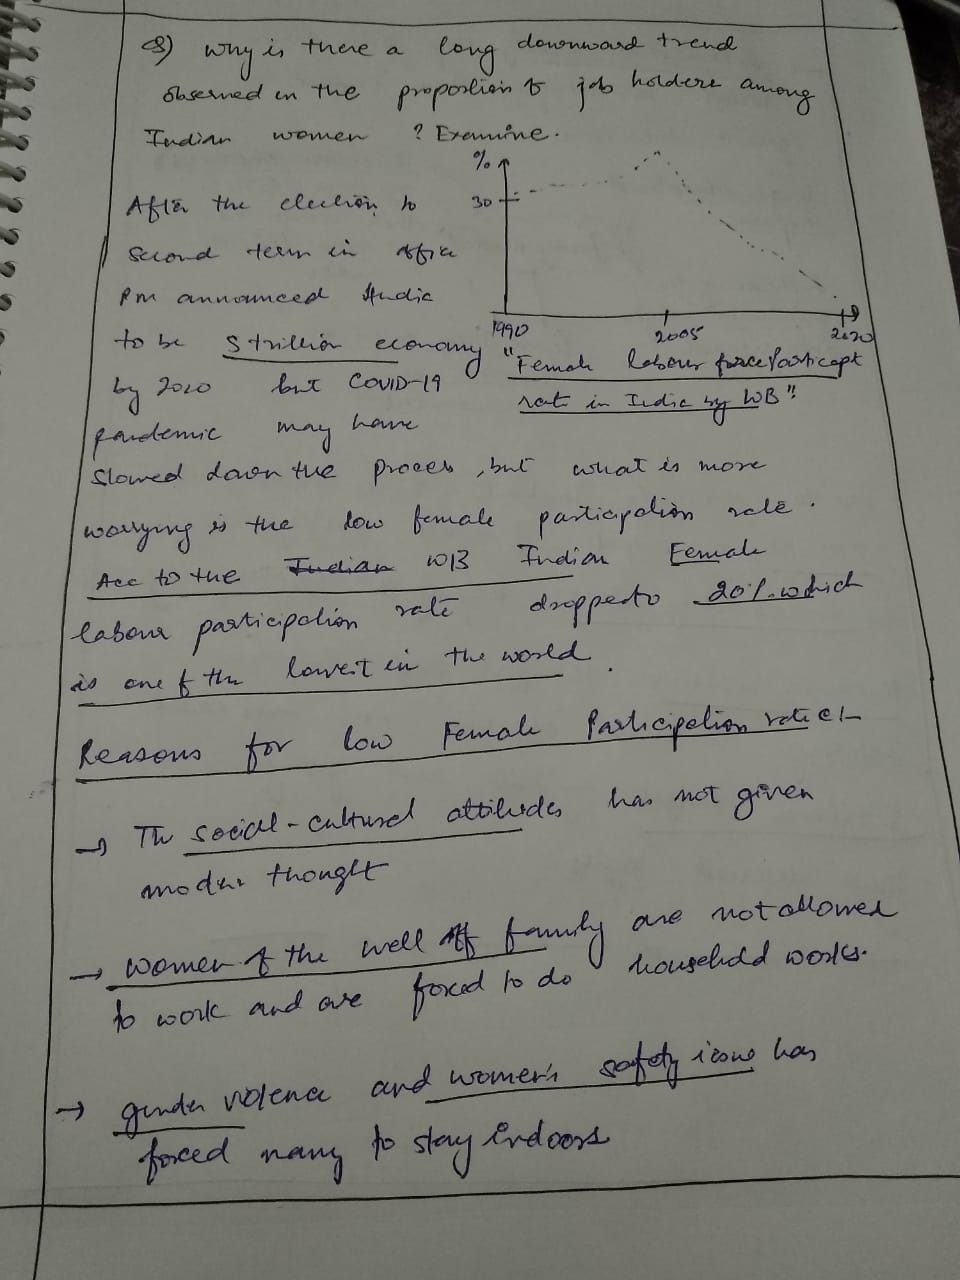 Q) Why is there a long downward trend
observed in the proportion of job holders among
Indian women ? Examine.
%
30
1990
2005
2020
"Female labour force Particept
rate in India by WB"
After the election to
second term in office
PM announced India
to be 5 trillion economy
by 2020 but COVID-19
pandemic may have
slowed down the process, but what is more
worrying is the low female participation rate.
Acc to the Indian WB Indian Female
labour participation rate dropped to 20% which
is one of the lowest in the world.
Reasons for low Female Participation rate :-
→ The social-cultural attitudes has not given
modern thought
→ women of the well off family are not allowed
to work and are forced to do household works.
→ gender violence and women's safety issue has
forced many to stay indoors